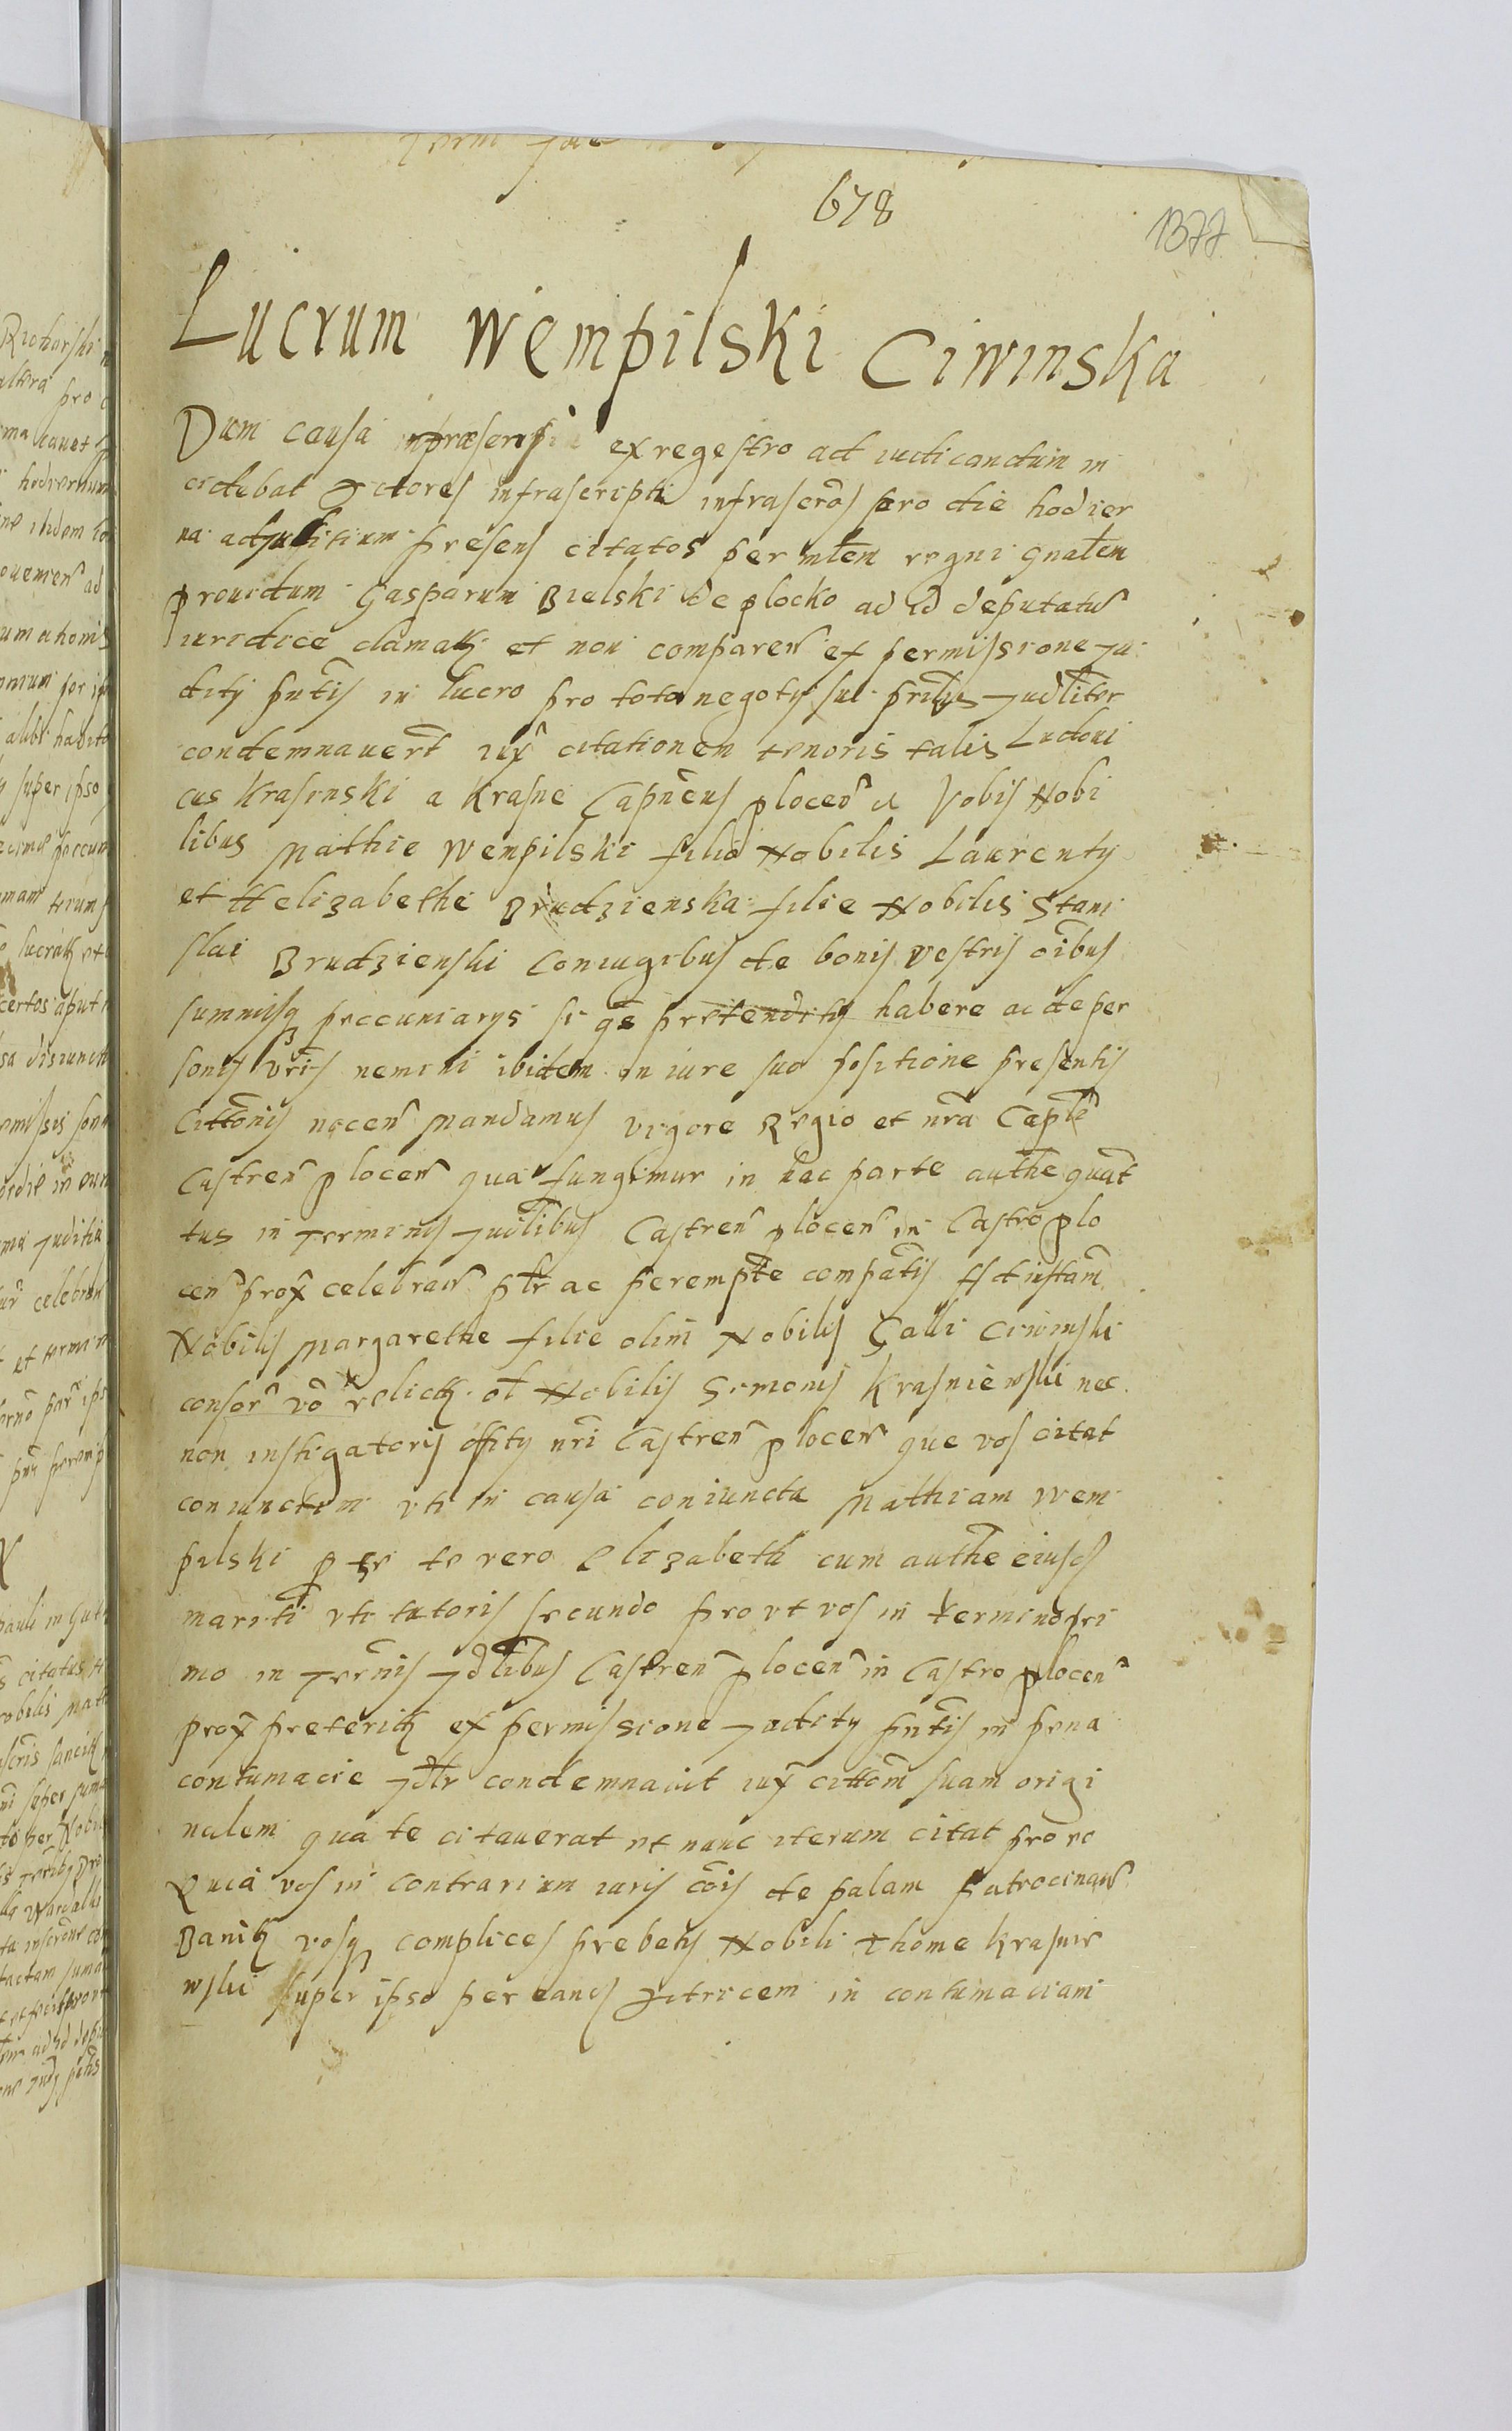 678
1377
Lucrum Wempilski Ciwinska
Dum causa ex regestro ad iudicandum in
cidebat Actores infrascripti infrascrōs pro die hodier
na ad Juditium presens citatos per mlēm regni gnalēm
prouidum Gasparum Bielski de plocko ad id deputatū
iuridice clamatꝫ et non comparen̄ ex permissione Ju
dity pn̄tis in lucro pro toto negotio sui Judlīter
condemnauerūt iux̄ citationem tenoris talis Ludoui
cus Krasinski a Krasne Capn̄eus plocen̄ Vobis Nobi
libus Mathie Wempilski filio Nobilis Laurenty
et Helizabethe Brudzienska filie Nobilis Stani
slai Brudzienski Coniugibus de bonis vestris oībus
summisqꝫ peccuniarys si qē pretenditis habere ac de per
sonis vrīs nemini ibidem in iure suo positione presentis
Cittōnis nocen̄ Mandamus vigore Regio et nrā Caplī
Castren̄ plocen̄ qua fungimur in hac parte autħe quat̄
tus in Terminis Judlībus Castren̄ plocen̄ in Castro plo
cen̄ prox̄ celebran̄ pltr̄ ac perempt̄e compatīs Ad instam̄
Nobilis Margarethe filie olim Nobilis Galli Ciwinski
consor̄ vō relictꝫ ol̄ Nobilis Simonis Krasniewski nec
non instigatoris offity nrī Castren̄ plocen̄ que vos citat
coniunctim vti in causa coniuncta Mathiam Wem
pilski p se te vero Elizabeth cum autħe eiusd
maritī vti tutoris secundo prout vos in termino pri
mo in Termīs Jdlībus Castren̄ plocen̄ in Castro plocen̄
prox̄ preteritꝫ ex permissione Judity pn̄tis in pena
contumacie Jdltr̄ condemnauit iux̄ cittōm suam origi
nalem qua te citauerat et nunc iterum citat pro eo
Quia vos in contrarium iuris cōis de palam patrocinan̄
Banitꝫ vosqꝫ complices prebetis Nobili Thome Krasnie
wski super ipso per eand Actricem in contumaciam